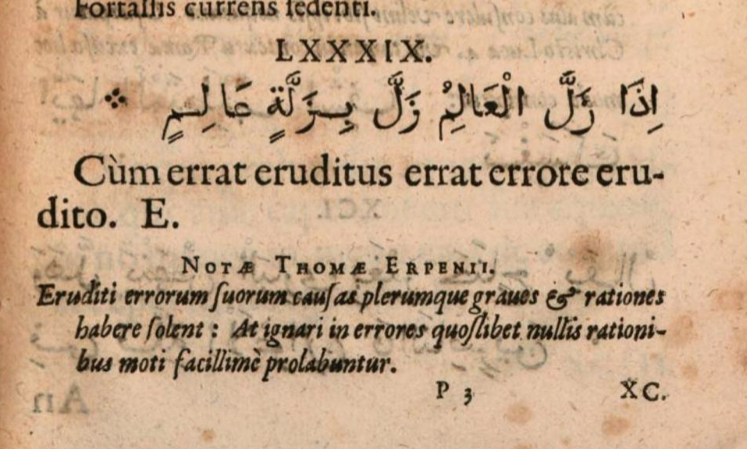 Fortaſſis currens ſedenti.
LXXXIX.
اِذَا زَلَّ الْعَالِمُ زَلَّ بِزَلَّةٍ عَالِمٍ ܀
Cùm errat eruditus errat errore eru-
dito. E.
NOTÆ THOMÆ ERPENII.
Eruditi errorum ſuorum cauſas plerumque graues & rationes
habere ſolent : At ignari in errores quoſlibet nullis rationi-
bus moti facillimè prolabuntur.
P 3 XC.